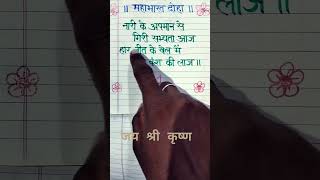 ॥ महाभारत दोहा ॥
नारी के अपमान से
गिरी सभ्यता आज
हार जीत के खेल में
वंश की लाज ॥
जय श्री कृष्ण